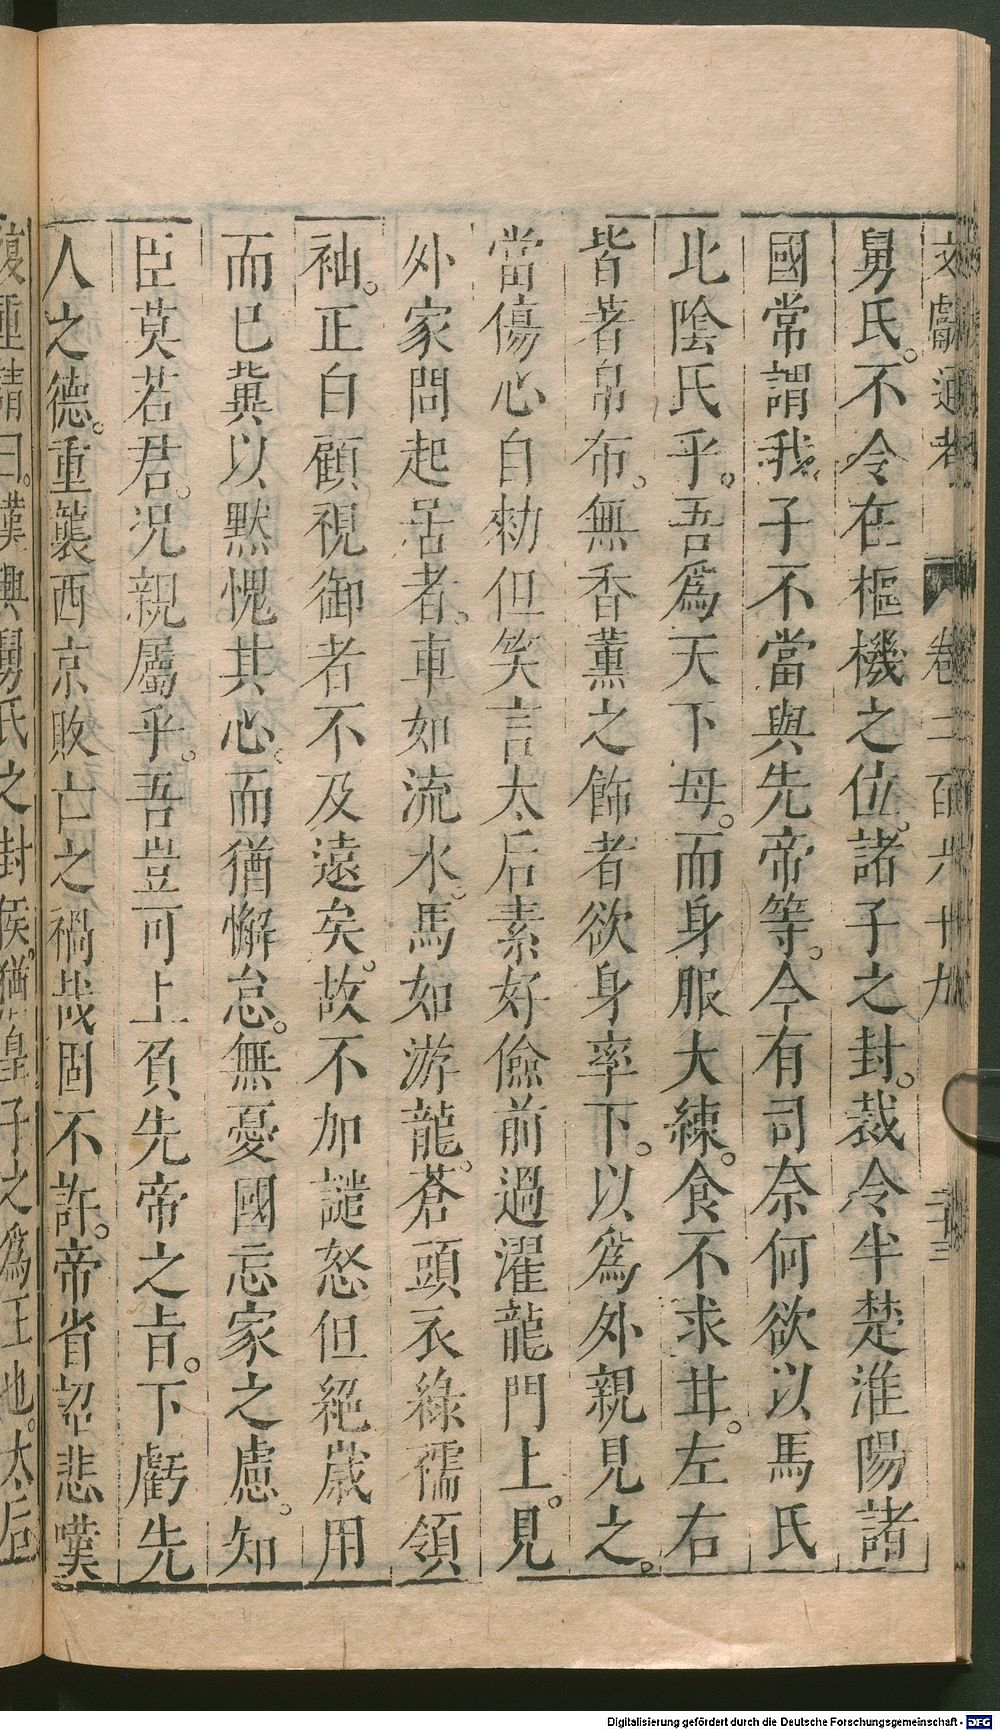 文獻通考 卷二百六十九 二十三
舅氏。不令在樞機之位。諸子之封。裁令半楚淮陽諸
國常謂我子不當與先帝等。今有司奈何欲以馬氏
北陰氏乎。吾爲天下母。而身服大練。食不求甘。左右
皆著帛布。無香薰之飾者欲身率下。以爲外親見之。
當傷心自勑但笑言太后素好儉前過濯龍門上。見
外家問起居者。車如流水。馬如游龍。蒼頭衣綠褠領
袖。正白顧視御者不及遠矣。故不加譴怒但絕歲用
而已冀以默愧其心。而猶懈怠。無憂國忘家之慮。知
臣莫若君。况親屬乎。吾豈可上負先帝之旨。下虧先
人之德。重襲西京敗亡之禍哉固不許。帝省詔悲嘆
復重請曰。漢興舅氏之封侯。猶皇子之爲王也。太后
Digitalisierung gefördert durch die Deutsche Forschungsgemeinschaft - DFG